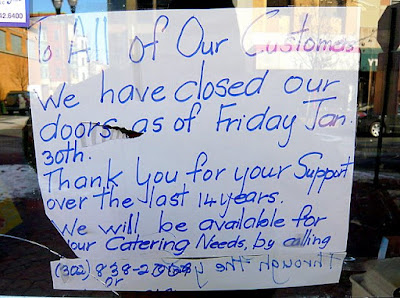 To All of Our Customers
We have closed our
doors as of Friday Jan.
30th.
Thank you for your Support
over the last 14 years.
We will be available for
your Catering Needs, by calling
(302) 838-
through the
or